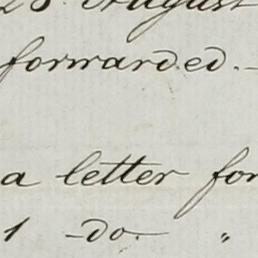 28 August
forwarded. -
a letter for
1 -do- "